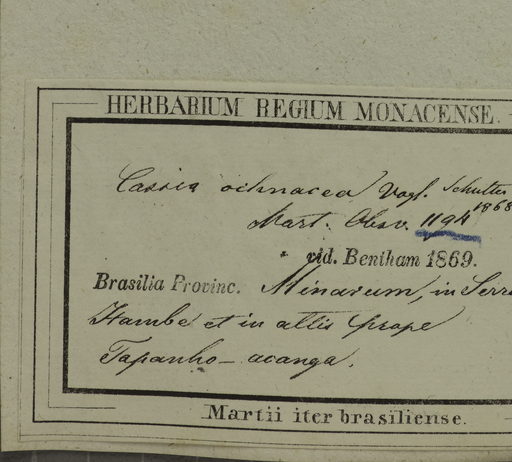 HERBARIUM REGIUM MONACENSE.
Cassia ochnacea Vogl. Schultes
1868
Mart. Obsv. 1194
vid. Bentham 1869.
Brasilia Provinc. Minarum, in Serra
Itambe et in altis prope
Tapanho-acanga.
Martii iter brasiliense.